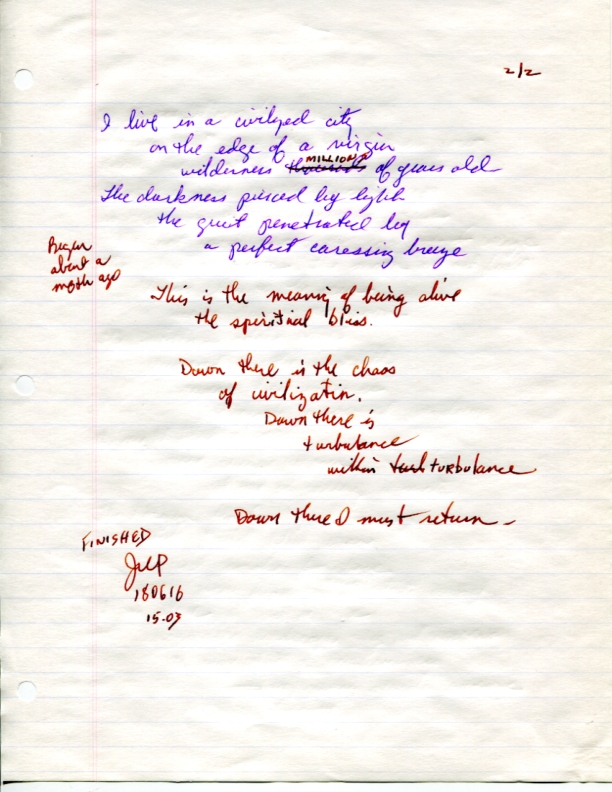 2/2
I live in a civilyzed city
on the edge of a virgin
wilderness thousands MILLIONS of years old
The darkness pierced by light
the quiet penetrated by
a perfect caressing breeze
Began
about a
month ago
This is the meaning of being alive
the spiritual bliss.
Down there is the chaos
of civilization.
Down there is
turbulance
within turbulance
Down there I must return -
FINISHED
180616
15.03